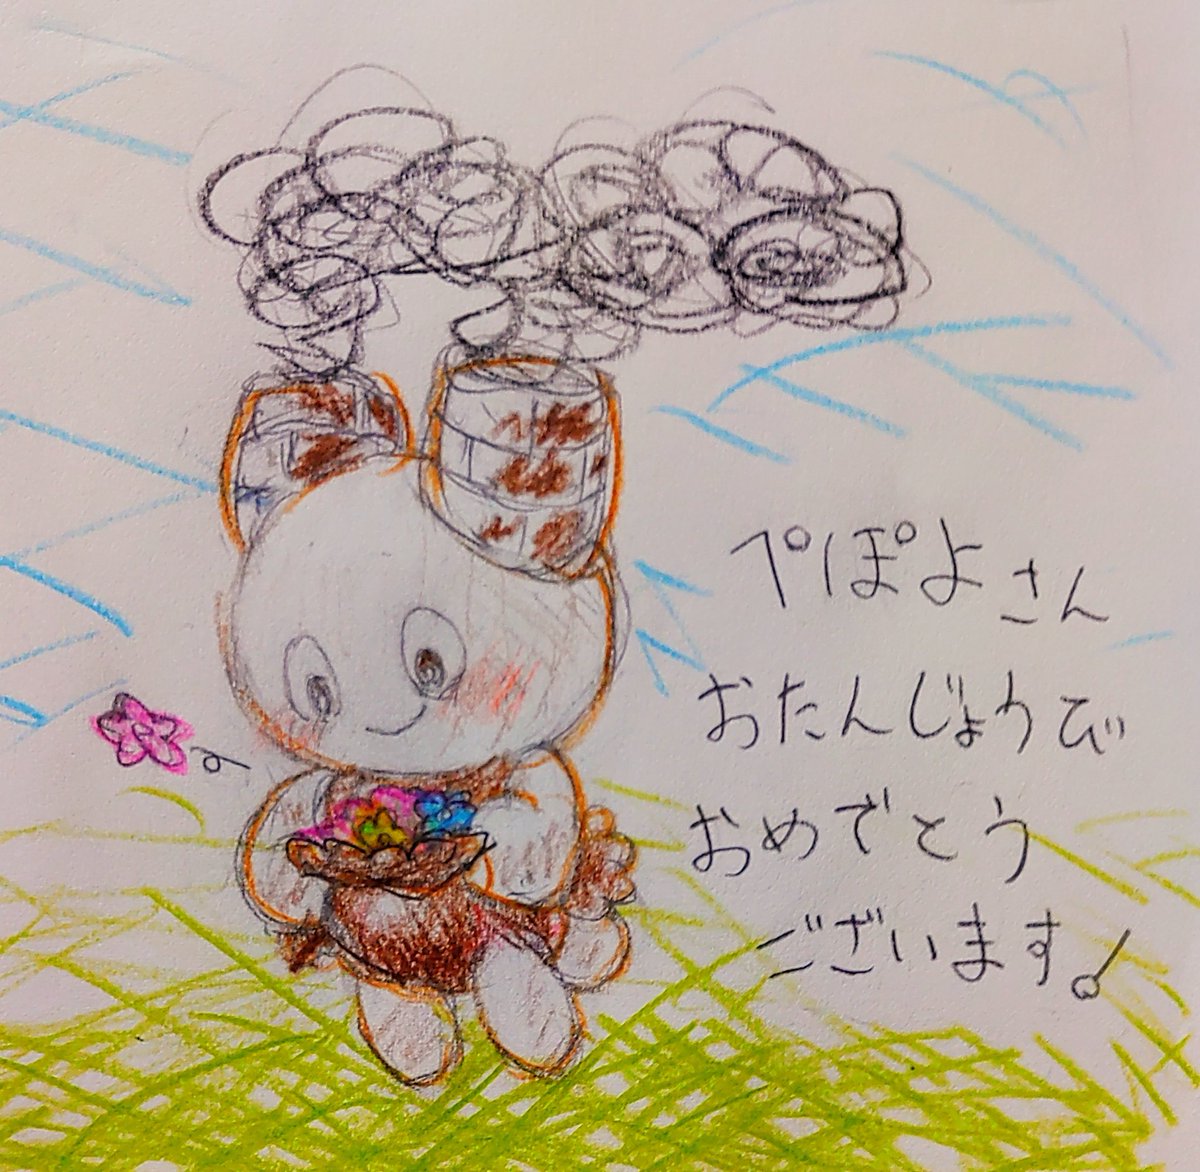 ぺぽよさん
おたんじょうび
おめでとう
ございます!